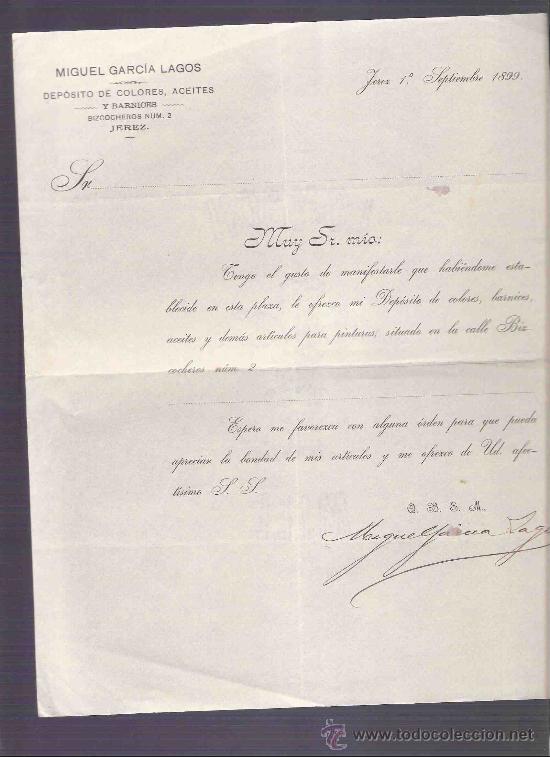 MIGUEL GARCÍA LAGOS
DEPÓSITO DE COLORES, ACEITES
Y BARNICES
BIZCOCHEROS NÚM. 2
JEREZ.
Jerez 1º Septiembre 1899.
Sr.
Muy Sr. mío:
Tengo el gusto de manifestarle que habiéndome esta-
blecido en esta plaza, le ofrezco mi Depósito de colores, barnices,
aceites y demás artículos para pinturas, situado en la calle Biz
cocheros núm. 2
Espero me favorezca con alguna órden para que pueda
apreciar la bondad de mis artículos y me ofrezco de Ud. afec-
tísimo S. S.
Q. B. S. M.
Miguel Garcia Lago
www.todocoleccion.net